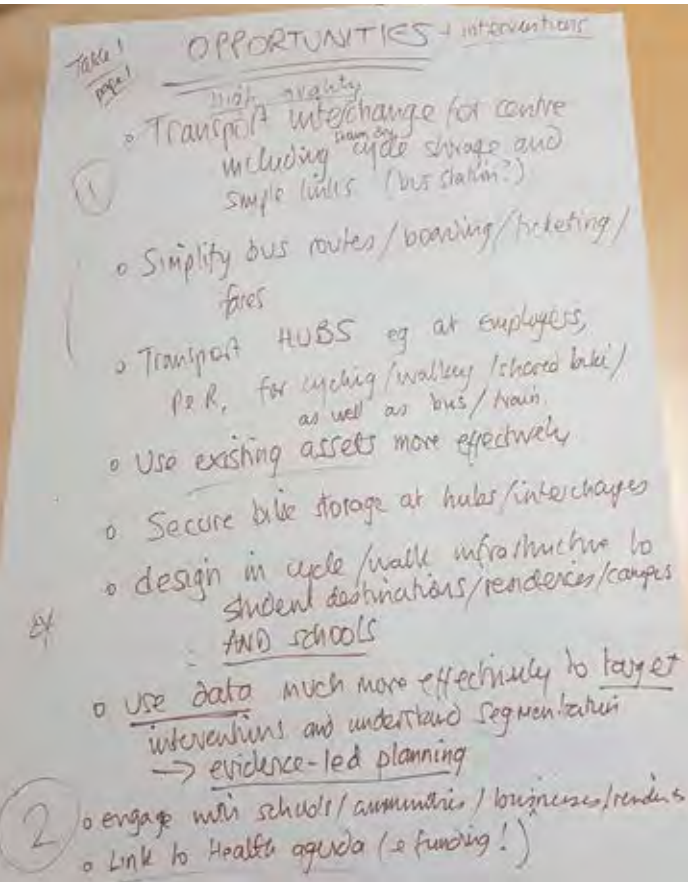 Table 1
page 1
OPPORTUNITIES + interventions
high quality
o Transport interchange for centre
including cycle storage and
simple links (bus station?)
1
o Simplify bus routes/boarding/ticketing/
fares
o Transport HUBS eg at employers,
P&R, for cycling/walking/shared bike/
as well as bus/train
o Use existing assets more effectively
o Secure bike storage at hubs/interchanges
o design in cycle/walk infrastructure to
student destinations/residences/campus
AND schools
o Use data much more effectively to target
interventions and understand segmentation
→ evidence-led planning
2
o engage with schools/communities/businesses/residents
o Link to Health agenda (& funding!)